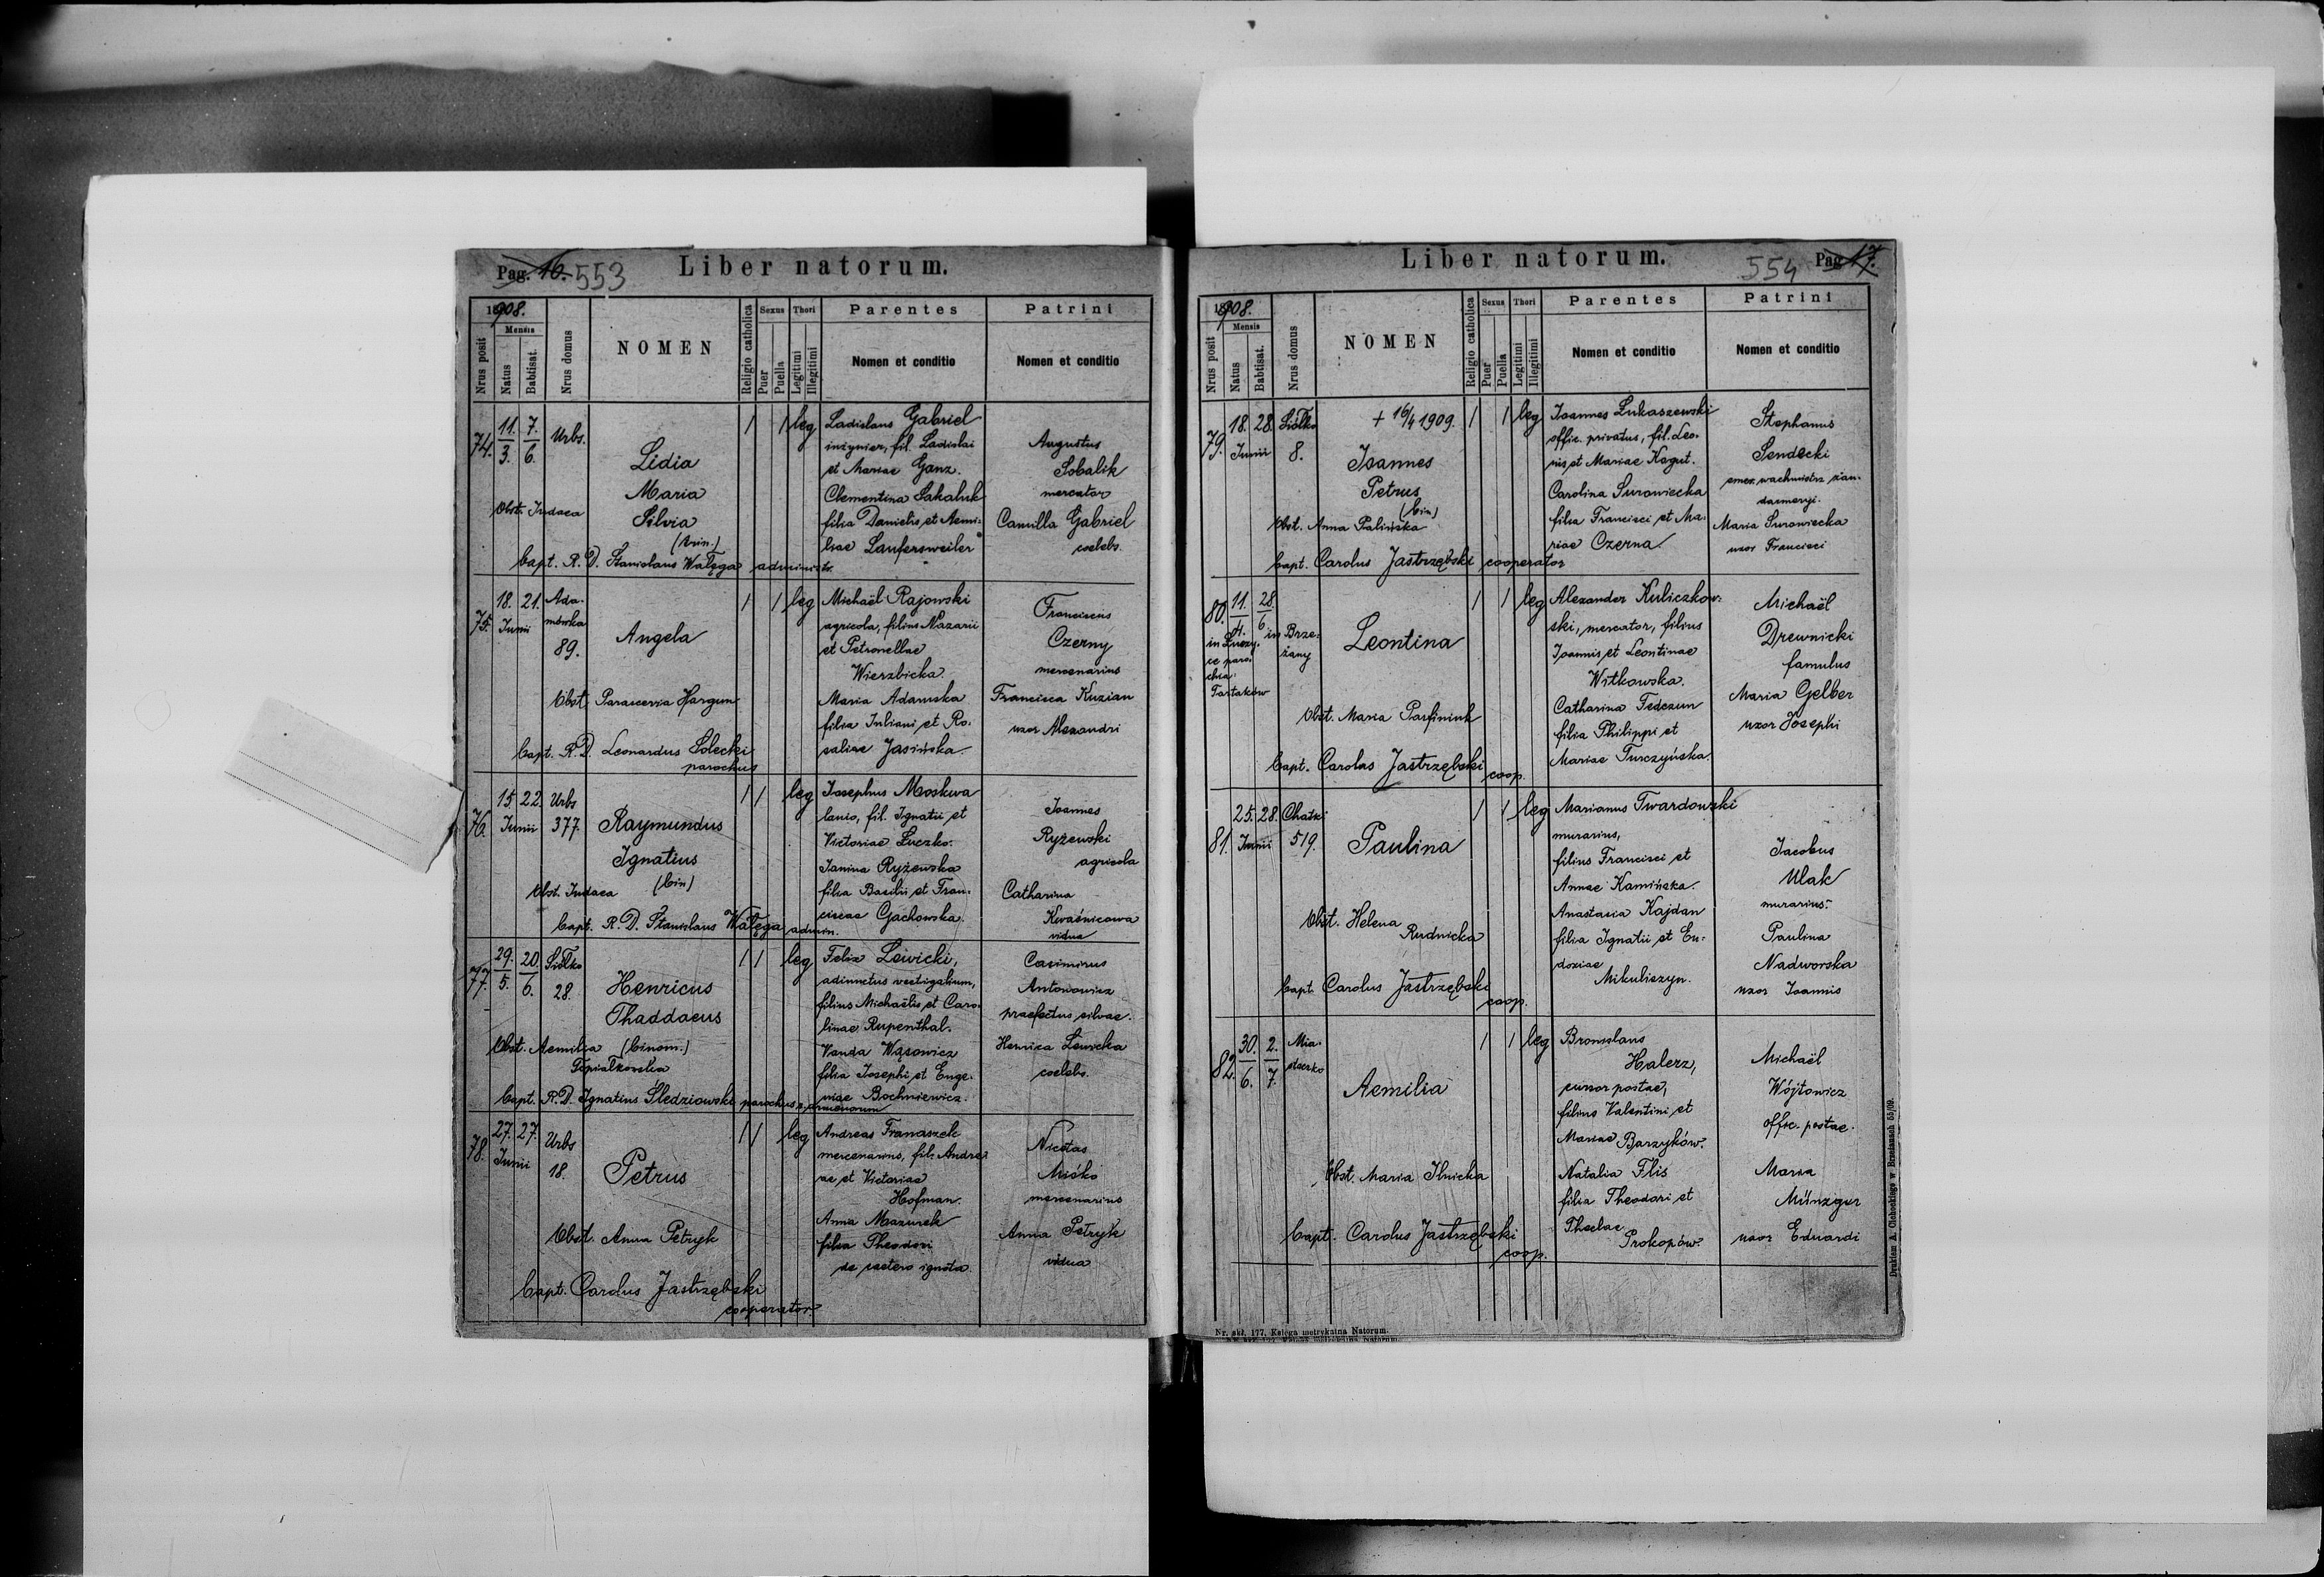 Pag. 16. 553
Liber natorum.
1908.
Mensis
Nrus posit
Natus
Babtisat.
Nrus domus
NOMEN
Religio catholica
Sexus
Puer
Puella
Thori
Legitimi
Illegitimi
Parentes
Nomen et conditio
Patrini
Nomen et conditio
74.
11. 7.
3. 6.
Urbs.
Lidia
Maria
Silvia
(trin.)
Obst. Judaea
bapt. R. D. Stanislaus Wałęga administr.
1 1 leg
Ladislaus Gabriel
inżynier, fil. Ladislai
et Mariae Ganz.
Clementina Sakaluk
filia Danielis et Aemi-
liae Laufersweiler
Augustus
Sobalik
mercator
Camilla Gabriel
coelebs.
75.
18. 21.
Junii
Ada-
mówka
89.
Angela
Obst. Parascevia Hargun
bapt. R. D. Leonardus Solecki
parochus
1 1 leg
Michaël Rajowski
agricola, filius Nazarii
et Petronellae
Wierzbicka.
Maria Adamska
filia Juliani et Ro-
saliae Jasińska.
Franciscus
Czerny
mercenarius
Francisca Kuzian
uxor Alexandri
76.
15 22
Junii
Urbs
377.
Raymundus
Ignatius
(bin)
Obst. Judaea
bapt. R. D. Stanislaus Wałęga admin.
1 1 leg
Josephus Moskwa
lanio, fil. Ignatii et
Victoriae Łuczko.
Janina Ryżewska
filia Basilii et Fran-
ciscae Gachowska.
Joannes
Ryżewski
agricola
Catharina
Kwaśnicowa
vidua
77.
29. 20.
5. 6.
Siółko
28.
Henricus
Thaddaeus
(binom.)
Obst. Aemilia
Topialkowska
bapt. R. D. Ignatius Śledziowski parochus armenorum
1 1 leg
Felix Lewicki,
adiunctus vectigalium,
filius Michaëlis et Caro-
linae Rupenthal.
Vanda Wąsowicz
filia Josephi et Euge-
niae Bochniewicz.
Casimirus
Antonowicz
praefectus silvae.
Henrica Lewicka
coelebs.
78.
27. 27.
Junii
Urbs
18.
Petrus
Obst. Anna Petryk
bapt. Carolus Jastrzębski
cooperator
1 1 leg
Andreas Franaszek
mercenarius, fil. Andre-
ae et Victoriae
Hofman.
Anna Mazurek
filia Theodori
de caetero ignota.
Nicetas
Miśko
mercenarius
Anna Petryk
vidua
Liber natorum.
554 Pag 17.
1908.
Mensis
Nrus posit
Natus
Babtisat.
Nrus domus
NOMEN
Religio catholica
Sexus
Puer
Puella
Thori
Legitimi
Illegitimi
Parentes
Nomen et conditio
Patrini
Nomen et conditio
79.
18. 28.
Junii
Siółko
8.
+ 16/4 1909.
Joannes
Petrus
(bin)
Obst. Anna Palińska
bapt. Carolus Jastrzębski cooperator
1 1 leg
Joannes Łukaszewski
offic. privatus, fil. Leo-
nis et Mariae Kogut.
Carolina Surowiecka
filia Francisci et Ma-
riae Czerna.
Stephanus
Sendecki
emer. wachmistrz żan-
darmeryi.
Maria Surowiecka
uxor Francisci
80.
11. 28.
4. 6
in
paro-
chia
Tartaków
in Brze-
żany
Leontina
Obst. Maria Parfiniuk
bapt. Carolus Jastrzębski
coop.
1 1 leg
Alexander Kuliczkow-
ski, mercator, filius
Joannis et Leontinae
Witkowska.
Catharina Fedczun
filia Philippi et
Mariae Turczyńska.
Michaël
Drewnicki
famulus
Maria Gelber
uxor Josephi
81.
25. 28.
Junii
Chatki
519.
Paulina
Obst. Helena
Rudnicka
bapt. Carolus Jastrzębski
coop.
1 1 leg
Marianus Twardowski
murarius,
filius Francisci et
Annae Kamińska.
Anastasia Kajdan
filia Ignatii et Eu-
doxiae
Mikuliczyn.
Jacobus
Ulak
murarius.
Paulina
Nadworska
uxor Joannis
82.
30. 2.
6. 7.
Mia-
steczko
Aemilia
Obst. Maria Ilnicka
bapt. Carolus Jastrzębski
coop.
1 1 leg
Bronislaus
Halerz,
cursor postae,
filius Valentini et
Mariae Barzyków.
Natalia Flis
filia Theodori et
Theclae
Prokopów.
Michaël
Wójtowicz
offic. postae.
Maria
Münzger
uxor Eduardi
Nr. skł. 177. Księga metrykalna Natorum.
Drukiem A. Cichockiego w Brzeżanach 55/09.